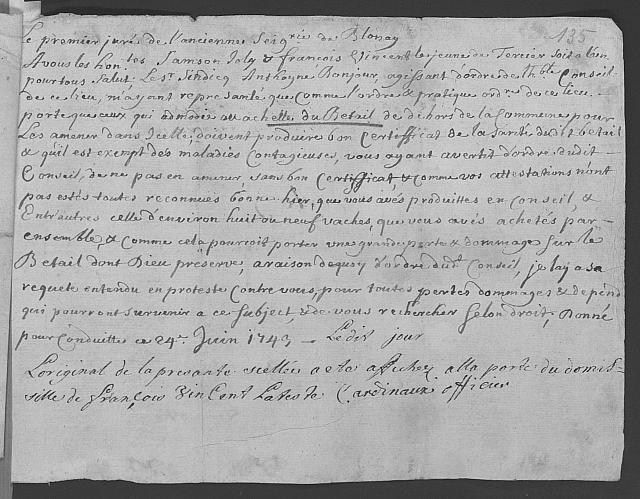 135
Le premier juré de l'ancienne Seigrie de Blonay
A vous les hon. tes Samson Joly & françois Vincent le jeune de Tercier soit à bien
pour tous Salut, Le Sr Sindicq Anthoyne Bonjour, agissant d'ordre de l'hble Conseil
de ce lieu, m'ayant represanté que comme l'ordre & pratique ordre de ce lieu
porte que ceux qui achettes du Betail de dehors de la Commune pour
Les amener dans Icelle, doivent produire bon Certifficat de la santé dudit betail
& qu'il est exempt des maladies Contagieuses, vous ayant avertit d'ordre dudit
Conseil, de ne pas en amener sans bon Certifficat, & comme vos attestations n'ont
pas estés toutes reconnues bonne hier, que vous avés produittes en Conseil, &
Entr'autres celle d'environ huit ou neuf vaches, que vous avés achetés par
ensemble & comme cela pourroit porter une grande perte & dommage sur le
Betail dont Dieu preserve, a raison dequoy d'ordre dudt Conseil, je lay a sa
requete entendu en proteste Contre vous, pour toutes pertes dommages & depend
qui pourront survenir a ce subject, & de vous rechercher selon droit, Donné
pour Conduitte ce 24e Juin 1743 Ledit jour
L'original de la presante scellée a ete affichez alla porte du domis-
sille de françois Vincent Lateste Cardinaux officier